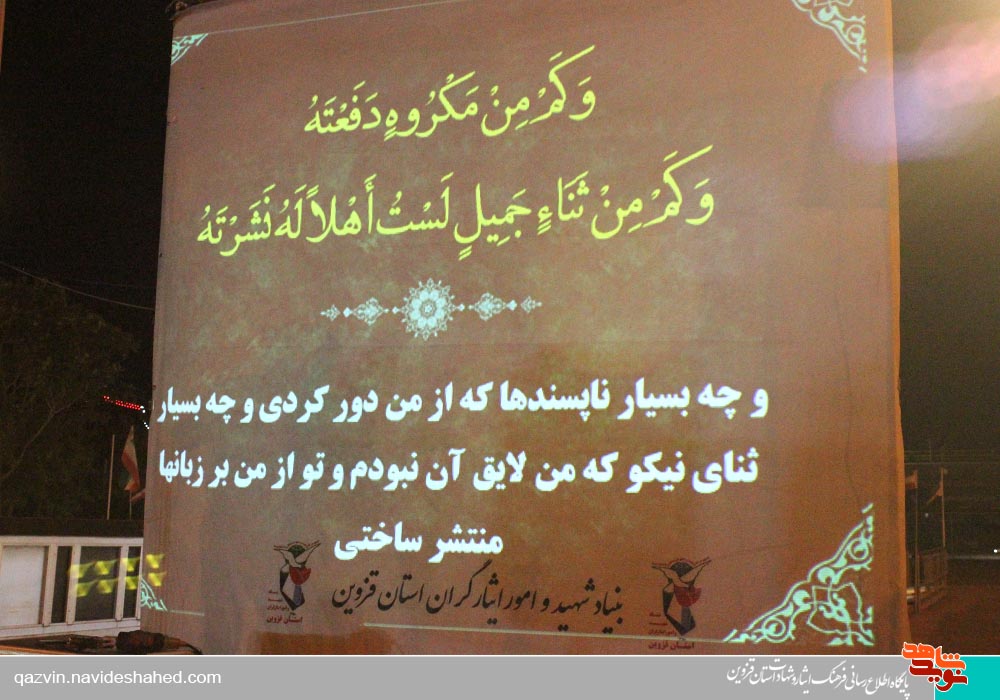 وَكَمْ مِنْ مَكْرُوهٍ دَفَعْتَهُ
وَكَمْ مِنْ ثَنَاءٍ جَمِيلٍ لَسْتُ أَهْلاً لَهُ نَشَرْتَهُ
و چه بسیار ناپسندها که از من دور کردی و چه بسیار
ثنای نیکو که من لایق آن نبودم و تو از من بر زبانها
منتشر ساختی
بنیاد شهید و امور ایثارگران استان قزوین
استان قزوین
استان قزوین
پایگاه اطلاع رسانی فرهنگ ایثار و شهادت استان قزوین
نوید شاهد
qazvin.navideshahed.com